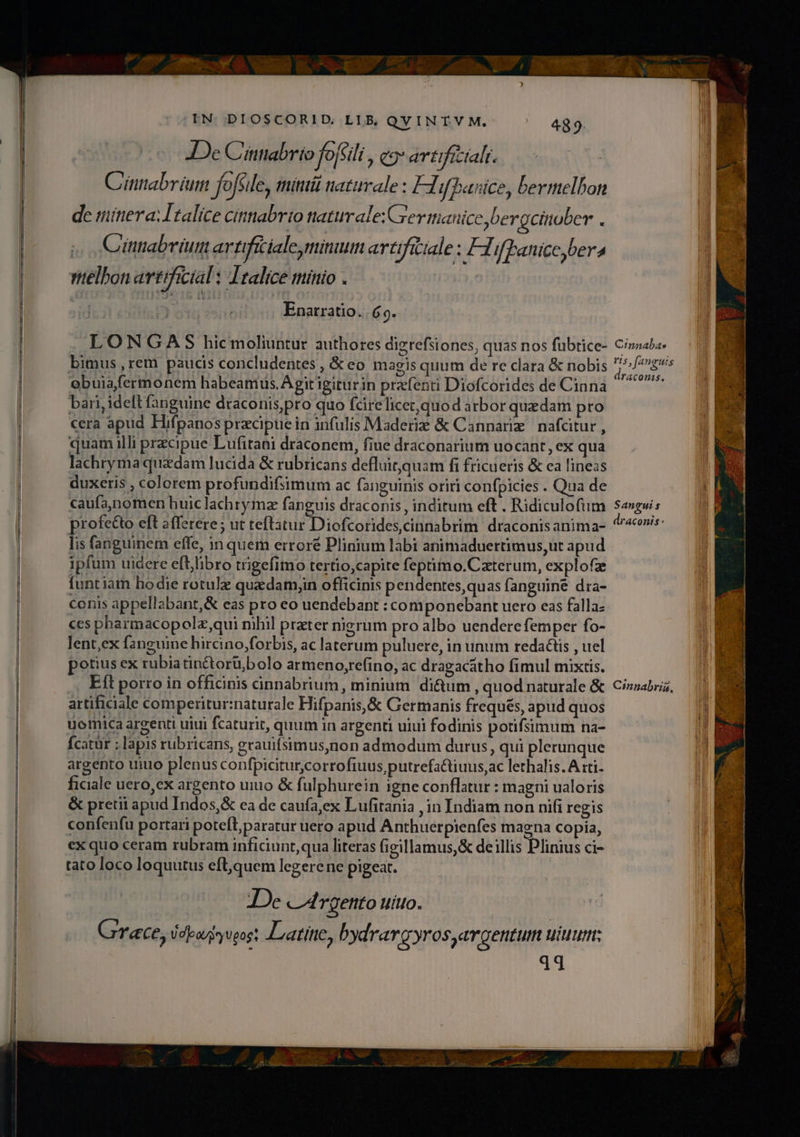 IN DIOSCORID. LIB. QVINTVM. 489
De Cinnabrio foſsili, & artificiali.
Cinnabrium foſsile, miniũ naturale: Hiſpanice, bermelhon
de minera: Italice cinnabrio naturale: Germanice, bergcinober.
Cinnabrium artificiale, minium artificiale: Hiſpanice, bera
melhon artificial: Italice minio.
Enarratio. 69.
LONGAS hic moliuntur authores digreſsiones, quas nos ſubtice-
bimus, rem paucis concludentes, & eo magis quum de re clara & nobis
obuia, ſermonem habeamus. Agit igitur in præſenti Dioſcorides de Cinna
bari, ideſt ſanguine draconis, pro quo ſcire licet, quod arbor quædam pro
cera apud Hiſpanos præcipue in inſulis Maderiæ & Cannariæ naſcitur,
quam illi præcipue Luſitani draconem, ſiue draconarium uocant, ex qua
lachryma quædam lucida & rubricans defluit, quam ſi fricueris & ea lineas
duxeris, colorem profundiſsimum ac ſanguinis oriri conſpicies. Qua de
cauſa, nomen huic lachrymæ ſanguis draconis, inditum eſt. Ridiculoſum
profecto eſt aſſerere; ut teſtatur Dioſcorides, cinnabrim draconis anima-
lis ſanguinem eſſe, in quem errorẽ Plinium labi animaduertimus, ut apud
ipſum uidere eſt, libro trigeſimo tertio, capite ſeptimo. Cæterum, exploſæ
ſunt iam hodie rotulæ quædam, in officinis pendentes, quas ſanguinẽ dra-
conis appellabant, & eas pro eo uendebant: componebant uero eas falla-
ces pharmacopolæ, qui nihil præter nigrum pro albo uendere ſemper ſo-
lent, ex ſanguine hircino, ſorbis, ac laterum puluere, in unum redactis, uel
potius ex rubia tinctorũ, bolo armeno, reſino, ac dragacátho ſimul mixtis.
Eſt porro in officinis cinnabrium, minium dictum, quod naturale &
artificiale comperitur: naturale Hiſpanis, & Germanis frequẽs, apud quos
uomica argenti uiui ſcaturit, quum in argenti uiui fodinis potiſsimum na-
ſcatur: lapis rubricans, grauiſsimus, non admodum durus, qui plerunque
argento uiuo plenus conſpicitur, corroſiuus, putrefactiuus, ac lethalis. Arti-
ficiale uero, ex argento uiuo & ſulphure in igne conflatur: magni ualoris
& pretii apud Indos, & ea de cauſa, ex Luſitania, in Indiam non niſi regis
conſenſu portari poteſt, paratur uero apud Anthuerpienſes magna copia,
ex quo ceram rubram inficiunt, qua literas ſigillamus, & de illis Plinius ci-
tato loco loquutus eſt, quem legere ne pigeat.
De Argento uiuo.
Græce, ὑδράργυρος: Latine, hydrargyros, argentum uiuum:
qq
Cinnaba-
ris, ſanguis
draconis.
Sanguis
draconis.
Cinnabriũ.